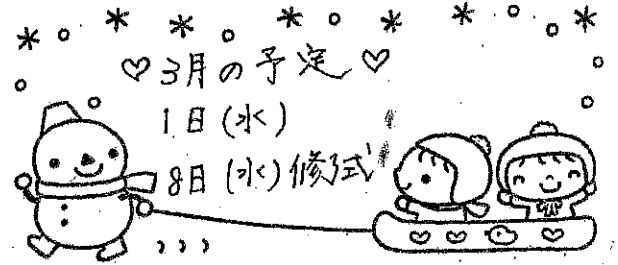 ♡3月の予定♡
1日(水)
8日(水)修了式